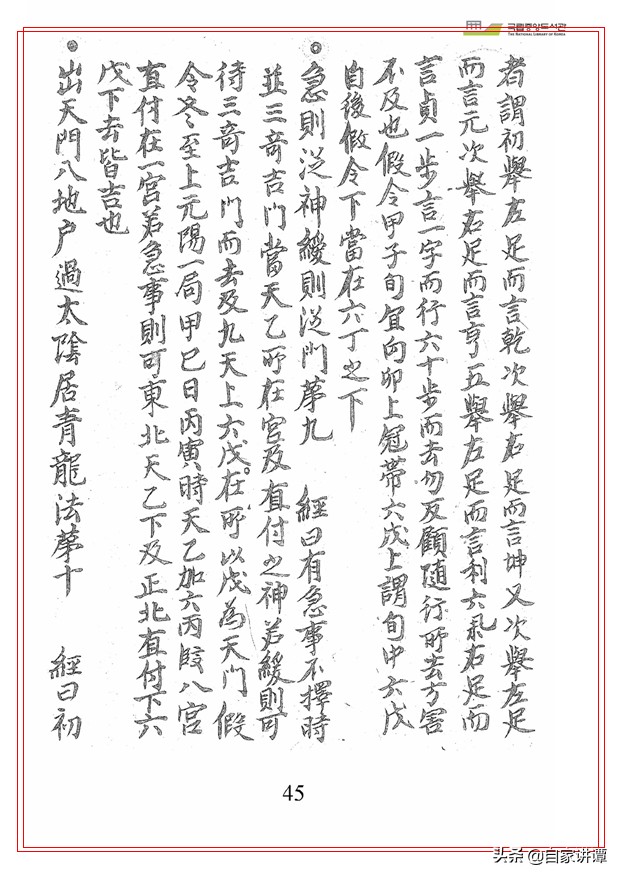 국립중앙도서관
THE NATIONAL LIBRARY OF KOREA
者謂初舉左足而言乾次舉右足而言坤又次舉左足
而言元次舉右足而言亨五舉左足而言利六舉右足而
言貞一步言一字而行六十步而去勿反顧隨行所去方害
不及也假令甲子旬宜向卯上冠帶六戊上謂旬中六戊
自後假令下當在六丁之下
急則從神緩則從門苐九 經曰有急事不擇時
並三奇吉門當天乙所在宮及直付之神若緩則可
待三奇吉門而去及九天上六戊在所以戊為天門 假
令冬至上元陽一局甲巳日丙寅時天乙加六丙臨八宮
直付在一宮若急事則可東北天乙下及正北直付下六
戊下去皆吉也
出天門入地户過太陰居青龍法苐十 經曰初
45
头条 @自家讲谭